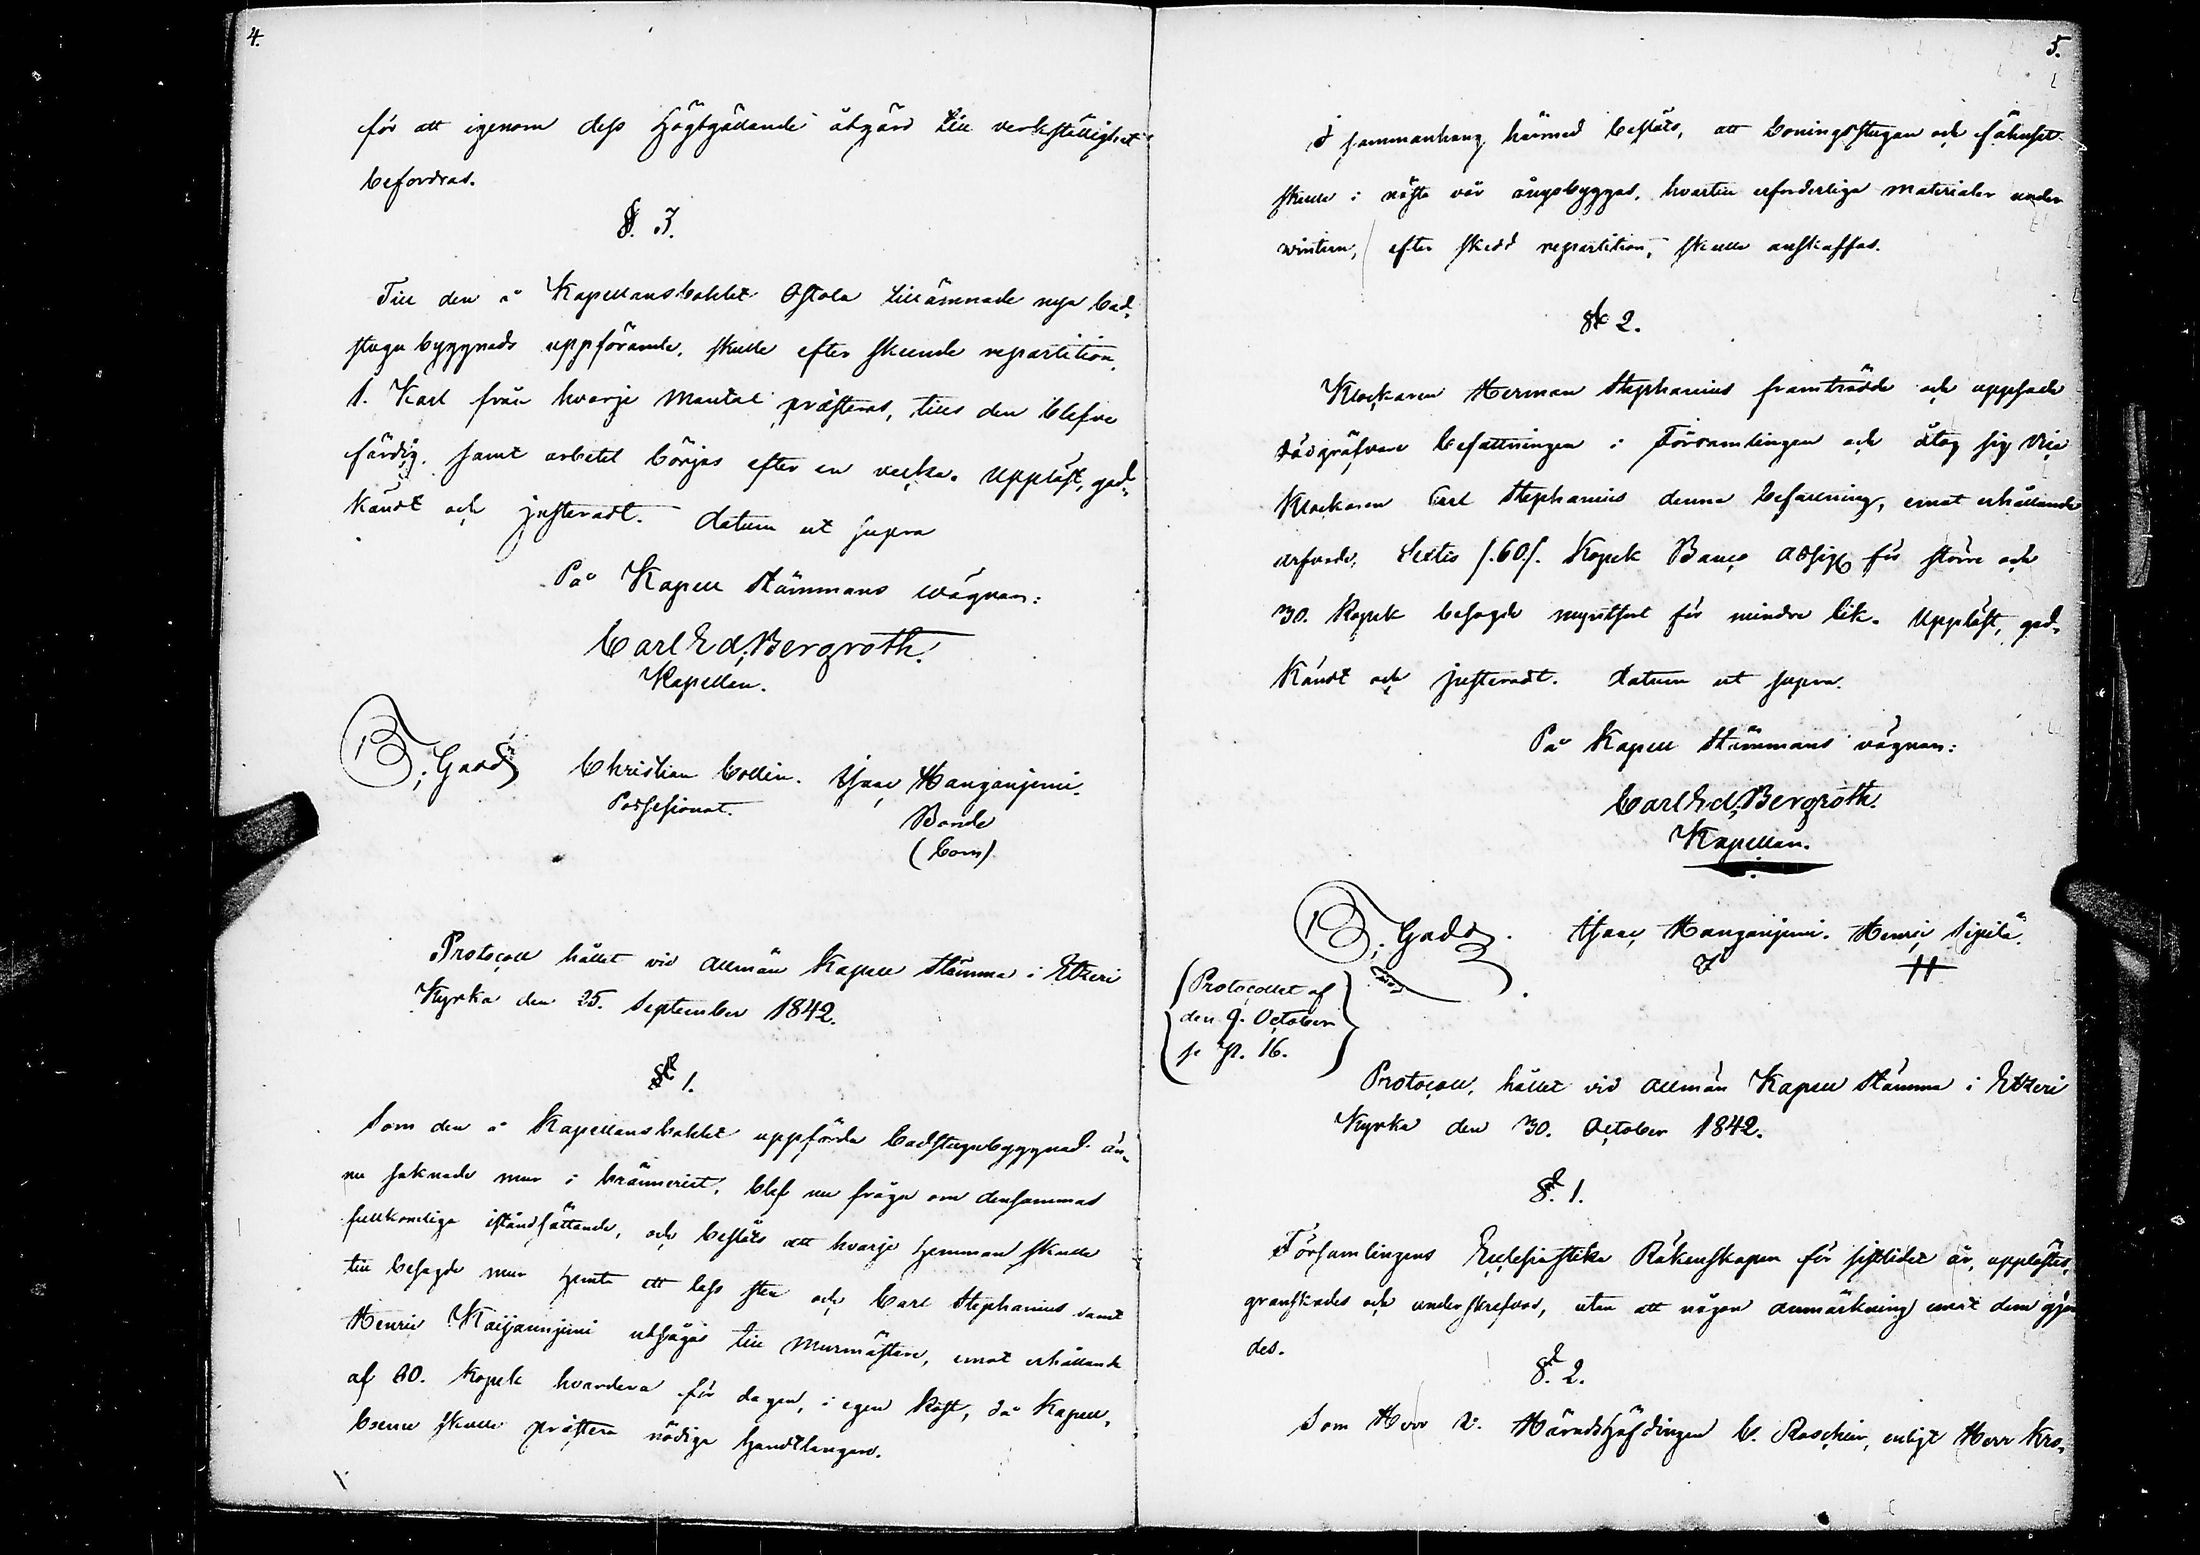 4.
för att igenom dess Högtgällande åtgärd till verkställighet
befordras.
§. 3.
Till den å Kapellansbohlet Ostola tillämnade nya bad-
stugu byggnads uppförande, skulle efter skeende repartition,
1. Karl från hvarje Mantal præsteras, tills den blefve
färdig, samt arbetet börjas efter en vecka. Uppläst, god-
kändt och justeradt. Datum ut supra
På Kapell Stämmans wägnar:
Carl Ed. Bergroth.
Kapellan.
B. Gadd Christian Collin. Isaac Hanganjemi.
Possessionat. Bonde
(bom)
Protocoll hållet vid Allmän Kapell Stämma i Etzeri
Kyrka den 25. September 1842.
§ 1.
Som den å Kapellansbohlet uppförda badstugubyggnad än-
nu saknade mur i bränneriet, blef nu fråga om densammas
fullkomliga iståndsättande, och beslöts att hvarje Hemman skulle
till besagde mur hemta ett lass sten och Carl Stephanius samt
Henric Kaijannjemi utsågos till Murmästare, emot erhållande
af 60. Kopek hvardera för dagen, i egen kost, då Kapell-
boerne skulle præstera nödige Handtlangare.
5.
I sammanhang härmed beslöts, att boningsstugan och fähuset
skulle i nästa vår ångsbyggas, hvartill erforderliga materialer under
wintern, efter skedd repartition, skulle anskaffas.
§ 2.
Klockaren Herman Stephanius framträdde och uppsade
dödgräfvare befattningen i Församlingen och åtog sig Vice
Klockaren Carl Stephanius denna befattning, emot erhållande
arfvode, Sextio /.60./. Kopek Banco Assign för större och
30. Kopek besagde myntsort för mindre lik. Uppläst, god-
kändt och justeradt. Datum ut supra.
På Kapell Stämmans vägnar:
Carl Ed. Bergroth.
Kapellan.
B. Gadd. Isaac Hanganjemi. Henric Sipilä.
(Protocollet af
den 9. October
se p. 16.)
Protocoll, hållet vid Allmän Kapell Stämma i Etzeri
Kyrka den 30. October 1842.
§. 1.
Församlingens Ecclesiastika Räkenskaper för sistlidet år, upplästes,
granskades och underskrefvos, utan att någon anmärkning emot dem gjor-
des.
§. 2.
Som Herr V. Häradshöfdingen C. Roschier, enligt Herr Kro-